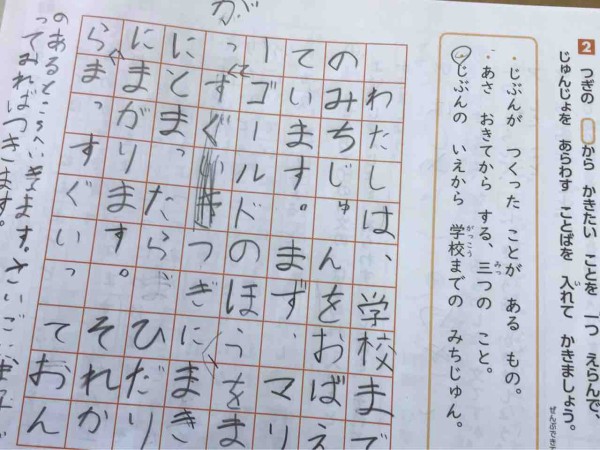 2 つぎの から かきたい ことを 一つ えらんで、
じゅんじょを あらわす ことばを 入れて かきましょう。
ぜんぶでき
・じぶんが つくった ことが ある もの。
・あさ おきてから する、三つの こと。
・じぶんの いえから 学校までの みちじゅん。
わたしは、学校まで
のみちじゅんをおばえ
ています。まず、マリ
ーゴールドのほうをま
っすぐつぎにまき
にとまったらひだり
にまがります。それか
らまっすぐいっておん
のあるところへいきます。さいご
っておればつきます。